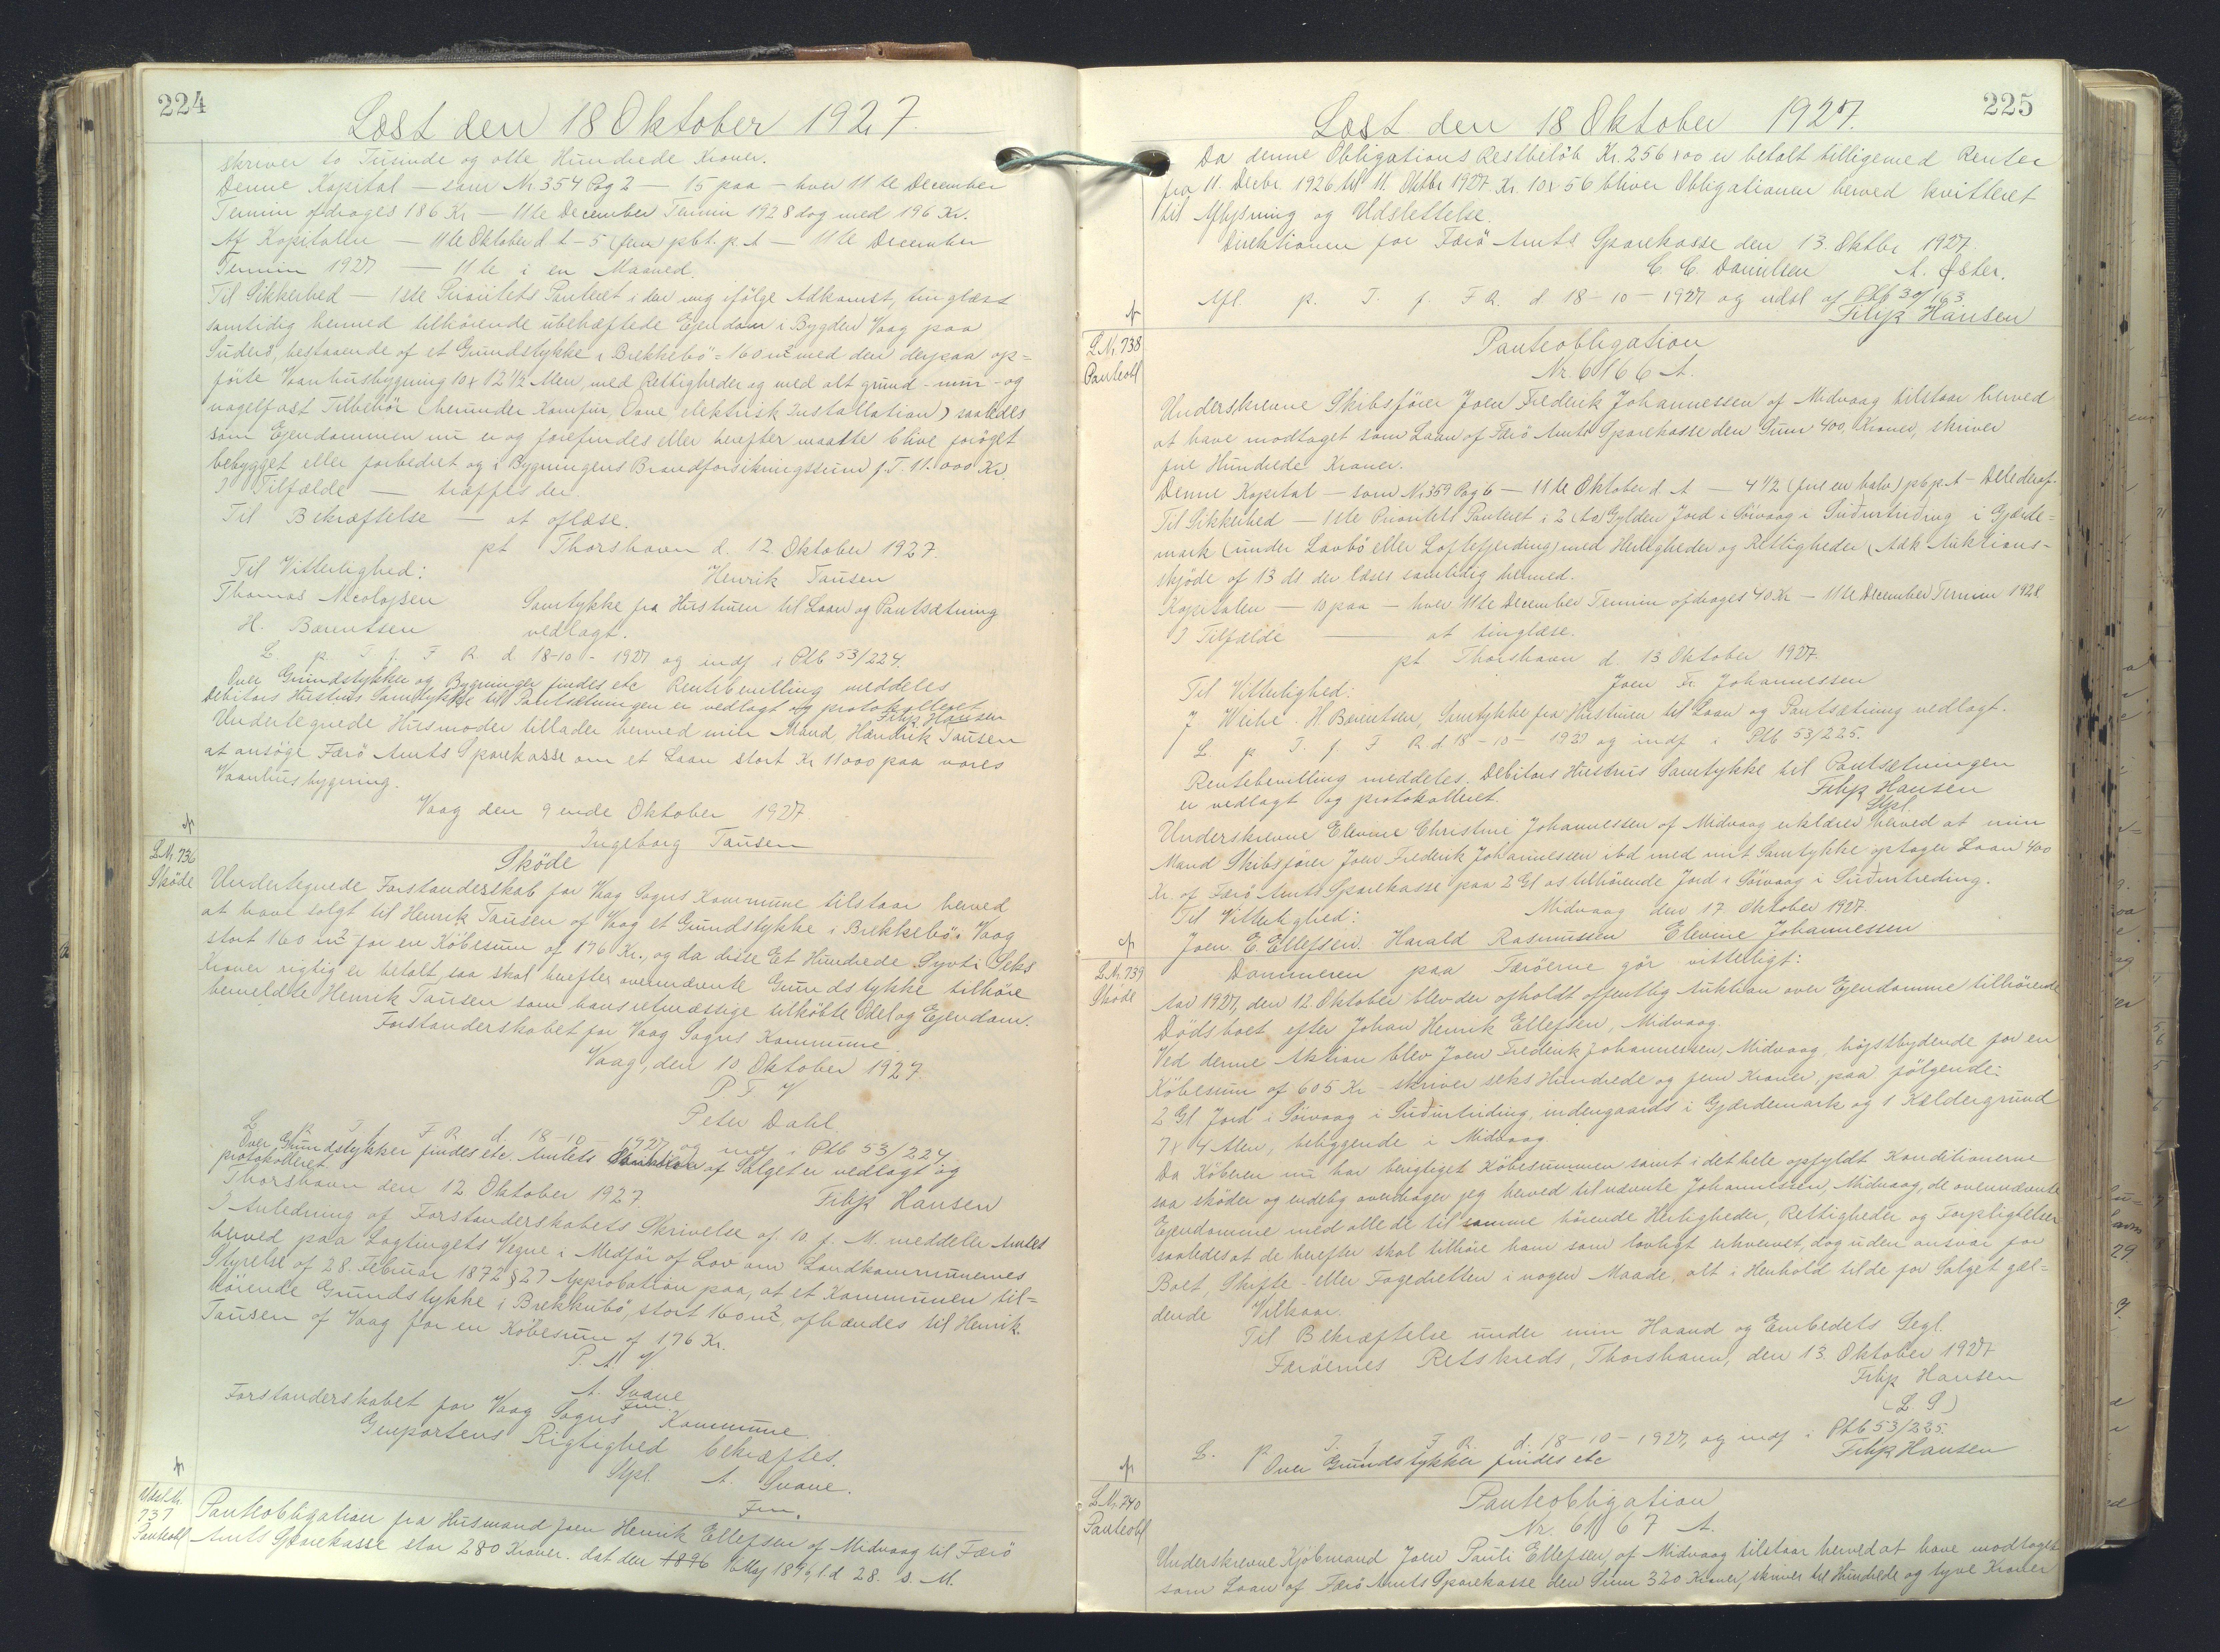 224
Læst den 18 Oktober 1927.
skriver to Tusinde og otte Hundrede Kroner.
Denne Kapital — som Nr. 354 Pag 2 — 15 paa — hver 11te December
Termin afdrages 186 Kr — 11te December Termin 1928 dog med 196 Kr.
Af Kapitalen — 11te Oktober d. A — 5 (fem) pCt. p. A — 11te December
Termin 1927 — 11te i en Maaned.
Til Sikkerhed — 1ste Prioritets Panteret i den mig ifölge Adkomst, tinglæst
samtidig hermed tilhörende ubehæftede Ejendom i Bygden Vaag paa
Suderö, bestaaende af et Grundstykke i Brekkebö = 160 m² med den derpaa op=
förte Vaanhusbygning 10 x 12 1/2 Alen, med Rettigheder og med alt grund- mur- og
nagelfast Tilbehör (herunder Komfur, Ovne elektrisk Installation) saaledes
som Ejendommen nu er og forefindes eller herefter maatte blive foröget
bebygget eller forbedret og i Bygningens Brandforsikringssum f. T. 11.000 Kr.
I Tilfælde — træffes der.
Til Bekræftelse — at aflæse.
pt Thorshavn d. 12. Oktober 1927.
Til Vitterlighed: Henrik Tausen
Thomas Nicolajsen Samtykke fra Hustruen til Laan og Pantsætning
H. Berentsen vedlagt.
L. p. T. f. F R. d. 18-10-1927 og indf i Ptb 53/224.
Over Grundstykker og Bygninger findes etc Rentebevilling meddeles
Debitors Hustrus Samtykke til Pantsætningen er vedlagt og protokolleret
Filip Hansen
Undertegnede Husmoder tillader hermed min Mand, Hendrik Tausen
at ansöge Færö Amts Sparekasse om et Laan stort Kr 11000 paa vores
Vaanhusbygning.
Vaag den 9ende Oktober 1927
Ingeborg Tausen
L.Nr. 736
Sköde
Sköde
Undertegnede Forstanderskab for Vaag Sogns Kommune tilstaar herved
at have solgt til Henrik Tausen af Vaag et Grundstykke i Brekkebö i Vaag
stort 160 m² for en Köbesum af 176 Kr., og da disse Et Hundrede Syvti Seks
Kroner rigtig er betalt, saa skal herefter ovennævnte Grundstykke tilhöre
bemeldte Henrik Tausen som hans utmæssige tilköbte Odel og Ejendom.
Forstanderskabet for Vaag Sogns Kommune
Vaag, den 10 Oktober 1927.
P. F V
Peter Dahl.
L. p. T. f. F R. d. 18-10-1927 og indf i Ptb 53/224.
Over Grundstykker findes etc. Amtets af Salget er vedlagt og
protokolleret.
Thorshavn den 12 Oktober 1927. Filip Hansen
I Anledning af Forstanderskabets Skrivelse af 10. f. M. meddeler Amtet
herved paa Lagtingets Vegne i Medför af Lov om Landkommunernes
Styrelse af 28. Februar 1872 § 27 Approbation paa, at et Kommunen til=
hörende Grundstykke i Brekkubö, stort 160 m², afhændes til Henrik
Tausen af Vaag for en Köbesum af 176 Kr.
P. A. V
A. Svane
Fm.
Forstanderskabet for Vaag Sogns Kommune.
Genpartens Rigtighed bekræftes.
Stpl. A. Svane.
Fm.
Udsl.Nr.
737
Panteobl
Panteobligation fra Husmand Joen Henrik Ellefsen af Midvaag til Færö
Amts Sparekasse stor 280 Kroner. dat den 1896 Maj 1896, l.d 28. s. M.
225
Læst den 18 Oktober 1927.
Da denne Obligations Restbelöb Kr. 256 x 00 er betalt tilligemed Renter
fra 11. Decbr. 1926 til 11. Oktbr. 1927 Kr. 10 x 56 bliver Obligationen herved kvitteret
til Aflysning og Udslettelse.
Direktionen for Færö Amts Sparekasse den 13. Oktbr 1927.
C. C. Danielsen A. Öster.
Afl. p. T. f. F R. d. 18-10-1927 og udsl af Ptb 30/163.
Filip Hansen
L.Nr. 738
Panteobl
Panteobligation
Nr. 6166 A.
Underskrevne Skibsförer Joen Frederik Johannessen af Midvaag tilstaar herved
at have modtaget som Laan af Færö Amts Sparekasse den Sum 400, Kroner, skriver
fire Hundrede Kroner.
Denne Kapital — som Nr. 359 Pag 6 — 11te Oktober d. A — 4 1/2 (fire en halv) pCt p. A — Dele deraf.
Til Sikkerhed — 1ste Prioritets Panteret i 2 (to) Gylden Jord i Sörvaag i Suðurtriding i Gjærde=
mark (under Lavbö eller Loftefjerding) med Herligheder og Rettigheder (Adk Auktions-
skjöde af 13 ds der læses samtidig hermed.
Kapitalen — 10 paa — hver 11te December Termin afdrages 40 Kr — 11te December Termin 1928
I Tilfælde — at tinglæse.
pt Thorshavn d. 13 Oktober 1927.
Til Vitterlighed: Joen Fr. Johannessen
J. Weihe. H. Berentsen, Samtykke fra Hustruen til Laan og Pantsætning vedlagt.
L. p. T. f. F R. d 18-10-1927 og indf i Ptb 53/225.
Rentebevilling meddeles. Debitors Hustrus Samtykke til Pantsætningen
er vedlagt og protokolleret. Filip Hansen
Stpl.
Underskrevne Elevine Christine Johannessen af Midvaag erklærer herved at min
Mand Skibsförer Joen Frederik Johannessen ibd med mit Samtykke optager Laan 400
Kr. af Færö Amts Sparekasse paa 2 Gl os tilhörende Jord i Sörvaag i Suðurtreding.
Midvaag den 17. Oktober 1927.
Til Vitterlighed:
Joen E. Ellefsen. Harald Rasmussen Elevine Johannessen
L.Nr. 739
Sköde
Dommeren paa Færöerne gör vitterligt:
Aar 1927, den 12. Oktober blev der afholdt offentlig Auktion over Ejendomme tilhörende
Dödsboet efter Johan Henrik Ellefsen, Midvaag.
Ved denne Aktion blev Joen Frederik Johannessen, Midvaag, höjstbydende for en
Köbesum af 605 Kr - skriver seks Hundrede og fem Kroner, paa fölgende:
2 Gl Jord i Sörvaag i Suðurtriding, indengaards i Gjærdemark og 1 Kældergrund
7 x 4 Alen, beliggende i Midvaag.
Da Köberen nu har berigtiget Köbesummen samt i det hele opfyldt Konditionerne
saa sköder og endelig overdrager jeg herved til nævnte Johannessen, Midvaag, de ovennævnte
Ejendomme med alle de til samme hörende Herligheder, Rettigheder og Forpligtelser
saaledes at de herefter skal tilhöre ham som lovligt erhvervet, dog uden ansvar for
Boet, Skifte- eller Fogedretten i nogen Maade, alt i Henhold til de for Salget gæl=
dende Vilkaar.
Til Bekræftelse under min Haand og Embedets Segl.
Færöernes Retskreds, Thorshavn, den 13. Oktober 1927
Filip Hansen
(L. S)
L. p. T. f. F R. d. 18-10-1927, og indf i Ptb 53/225.
Over Grundstykker findes etc Filip Hansen
L.Nr. 740
Panteobl
Panteobligation
Nr. 6167 A.
Underskrevne Kjöbmand Joen Pauli Ellefsen, af Midvaag tilstaar herved at have modtaget
som Laan af Færö Amts Sparekasse den Sum 320 Kroner, skriver tre Hundrede og tyve Kroner